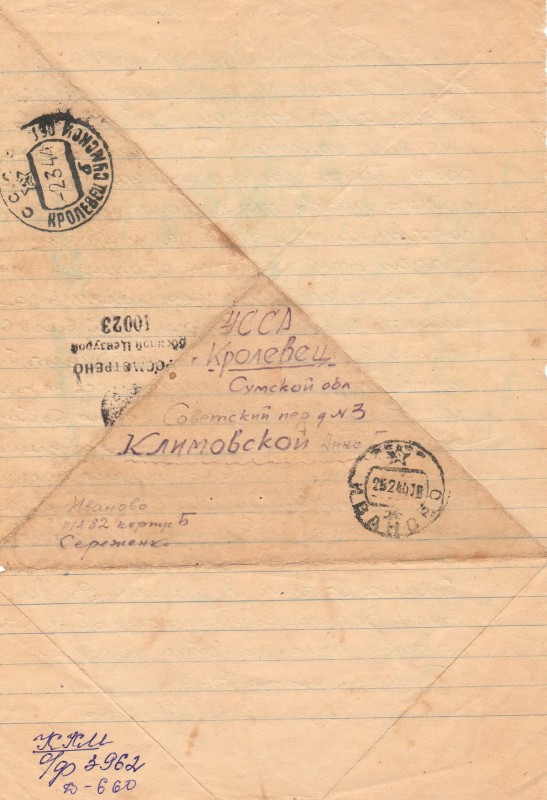 СССР
КРОЛЕВЕЦ СУМСКОЙ ОБЛ
-2.3.44
ПРОСМОТРЕНО
Военной Цензурой
10023
УССР
Кролевец
Сумской обл
Советский пер д № 3
Климовской
ИВАНОВО
Иваново
п/я 82 корпус Б
Сереженко
ККМ
О/ф 3962
Д-660